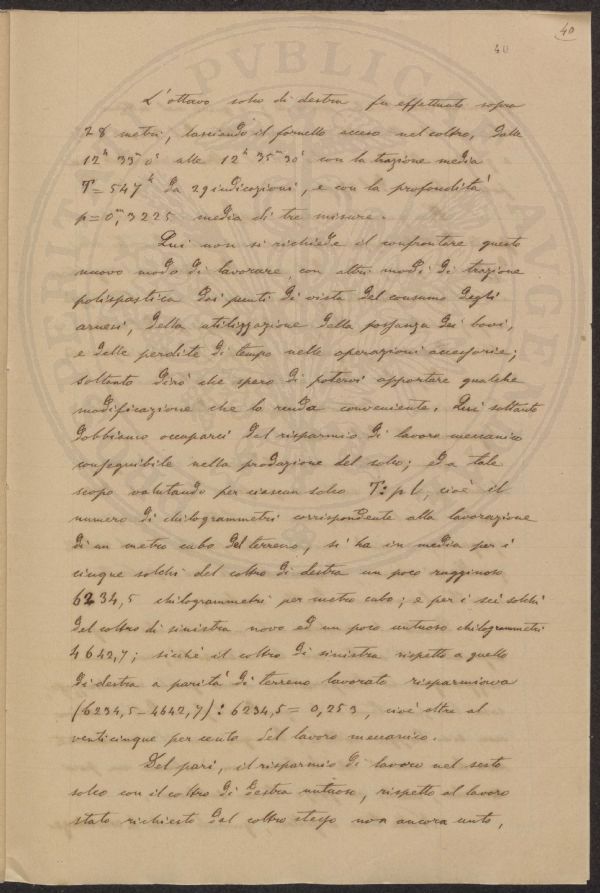 40
40
L'ottavo solco di destra fu effettuato sopra
28 metri, lasciando il fornello acceso nel coltro, dalle
12ʰ 33ᵐ 0ˢ alle 12ʰ 35ᵐ 30ˢ con la trazione media
T = 547ᵏ da 29 indicazioni, e con la profondità
p = 0,ᵐ3225 media di tre misure.
Qui non si richiede il confrontare questo
nuovo modo di lavorare, con altri modi di trazione
polispastica dai punti di vista del consumo degli
arnesi, della utilizzazione della possanza dei bovi,
e delle perdite di tempo nelle operazioni accessorie;
soltanto dirò che spero di potervi apportare qualche
modificazione che lo renda conveniente. Qui soltanto
dobbiamo occuparci del risparmio di lavoro meccanico
conseguibile nella produzione del solco; ed a tale
scopo valutando per ciascun solco T: pl, cioè il
numero di chilogrammetri corrispondente alla lavorazione
di un metro cubo del terreno, si ha in media per i
cinque solchi del coltro di destra un poco rugginoso
6234,5 chilogrammetri per metro cubo; e per i sei solchi
del coltro di sinistra novo ed un poco untuoso chilogrammetri
4642,7; sicchè il coltro di sinistra rispetto a quello
di destra a parità di terreno lavorato risparmiava
(6234,5 – 4642,7) : 6234,5 = 0,253, cioè oltre al
venticinque per cento del lavoro meccanico.
Del pari, il risparmio di lavoro nel sesto
solco con il coltro di destra untuoso, rispetto al lavoro
stato richiesto dal coltro stesso non ancora unto,